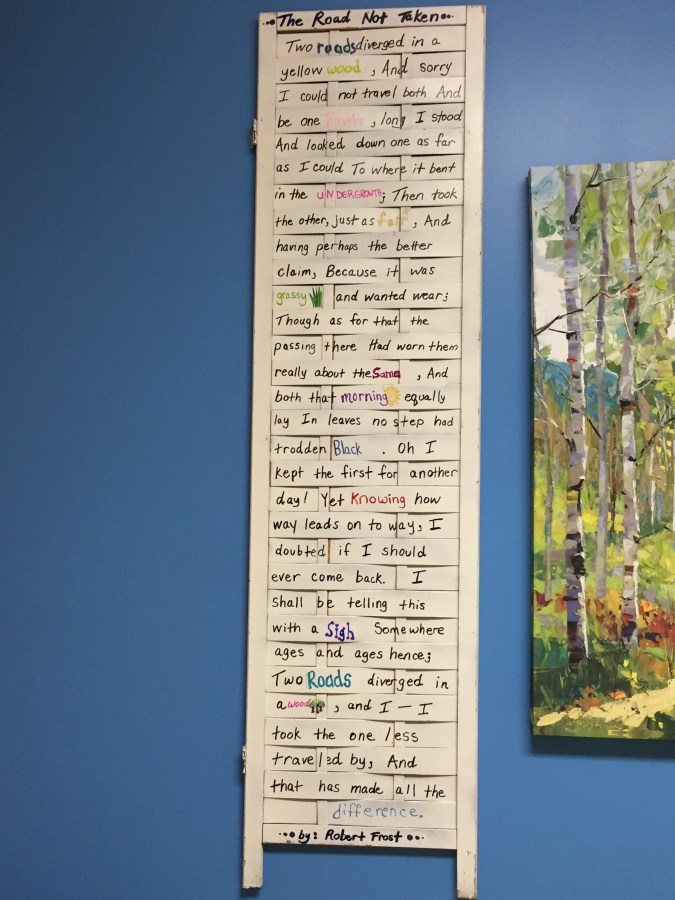 The Road Not Taken
Two roads diverged in a
yellow wood, And sorry
I could not travel both And
be one Traveler, long I stood
And looked down one as far
as I could To where it bent
in the UNDERGROWTH; Then took
the other, just as fair, And
having perhaps the better
claim, Because it was
grassy and wanted wear;
Though as for that the
passing there Had worn them
really about the Same, And
both that morning equally
lay In leaves no step had
trodden Black. Oh I
kept the first for another
day! Yet Knowing how
way leads on to way, I
doubted if I should
ever come back. I
shall be telling this
with a Sigh Somewhere
ages and ages hence;
Two Roads diverged in
a wood, and I — I
took the one less
traveled by, And
that has made all the
difference.
by: Robert Frost